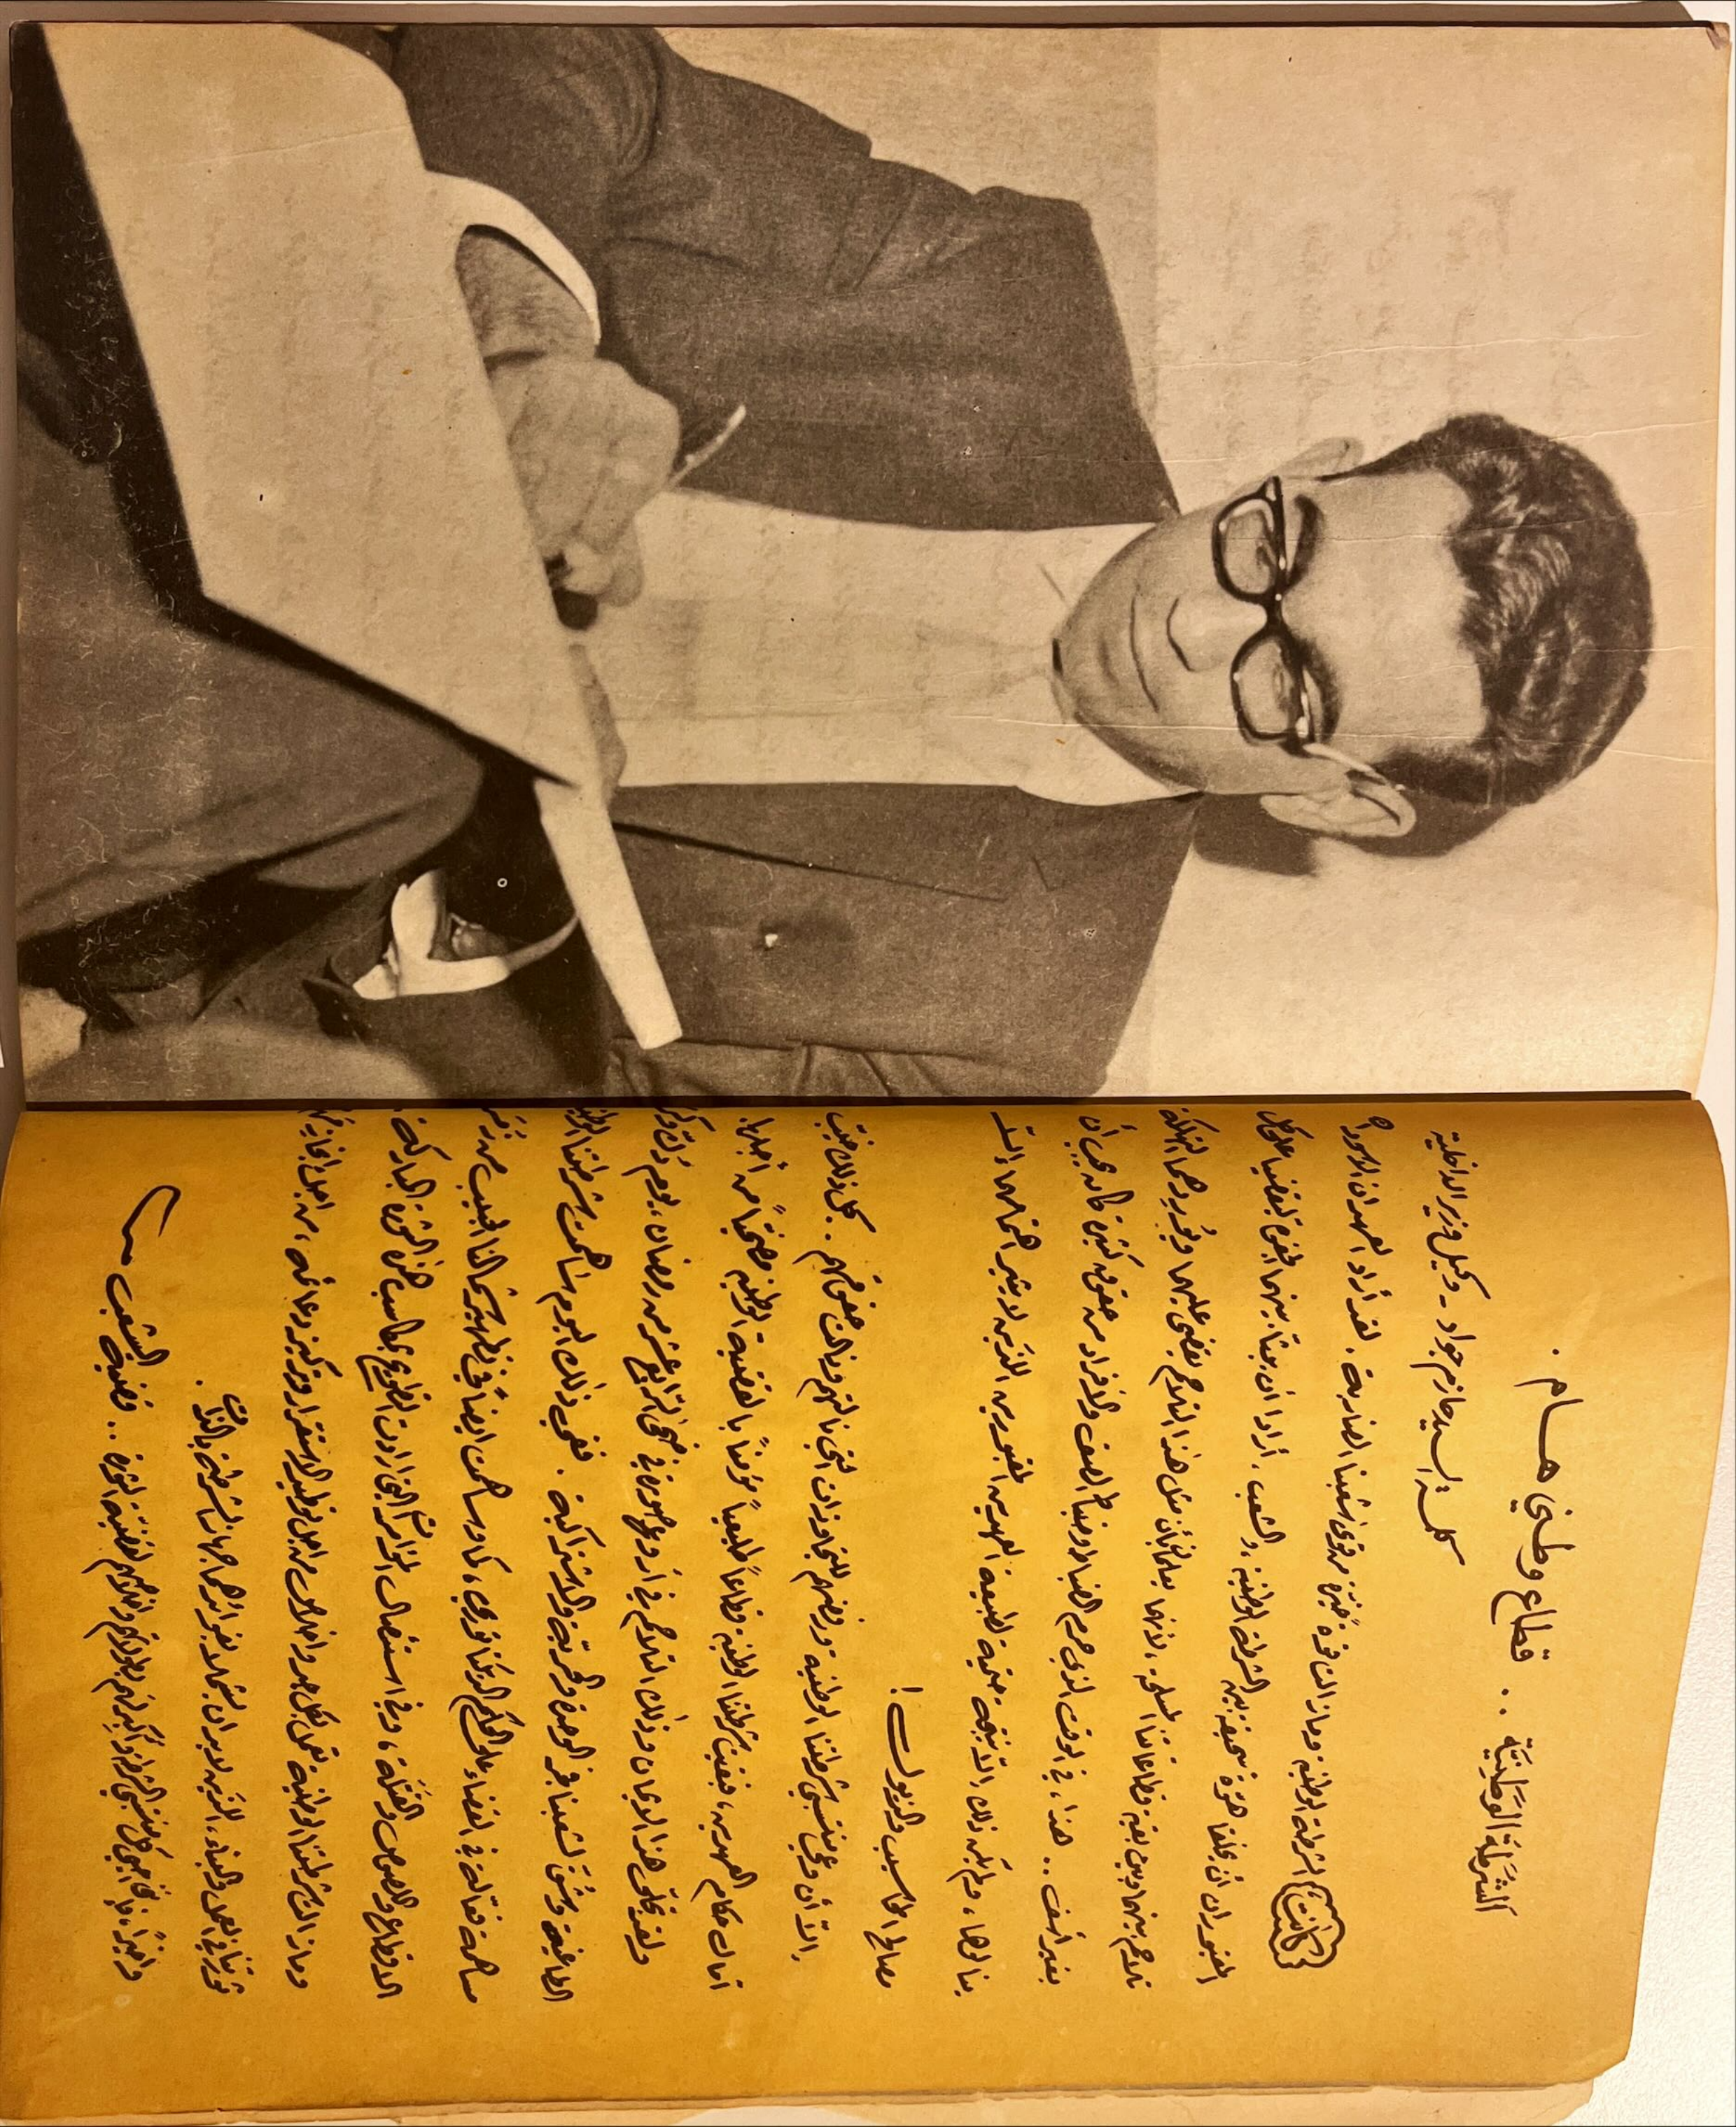 الشرطة الوطنية .. قطاع وطني هام .
كلمة السيد حازم جواد - وكيل وزير الداخلية
كانت الشرطة الوطنية وما زالت قوة خيّرة من قوى شعبنا الضاربة . لقد أراد العهدان الأسودان
المقبوران أن يخلقا هوة سحيقة بين الشرطة الوطنية والشعب . أرادا أن يبقيا بينهما الجفوة ليقضيا على كل
تلاحم بينها وبين بقية قطاعاتنا المسلحة ، لأنهما يعلمان بأن مثل هذا التلاحم يقضي عليهما ويوردهما التهلكة
بغير أسف .. هذا ، في الوقت الذي حرم الضباط وضباط الصف والأفراد من حقوق كثيرة كان يجب أن
ينالوها ، ولم يكن ذلك إلا نتيجة حتمية لطبيعة العهدين المقبورين اللذين لا يثير اهتمامهما إلا
مصالح المحاسيب والأزلام !
إلا أن وعي منتسبي شرطتنا الوطنية ورفضهم للتجاوزات التي نالتهم ونالت حقوقهم . كل ذلك خيّب
آمال حكام العهدين ، فبقيت شرطتنا الوطنية قطاعاً طليعياً مؤمناً بالقضية الوطنية ومضحياً من أجلها .
ولقد تجلى هذا الإيمان وذلك التلاحم في أروع صورة في ضحى الرابع عشر من رمضان ، يوم دكّ وكر
الطاغية وشُقّ لشعبنا فجر الوحدة والحرية والاشتراكية . ففي ذلك اليوم ساهمت شرطتنا الوطنية
مساهمة فعالة في القضاء على الحكم الدكتاتوري ، كما وساهمت أيضاً في تطهير شمالنا الحبيب من زمر
الاقطاع واللصوص والقتلة ، وفي استئصال المؤامرات التي ارادت الاطاحة بمكاسب هذه الثورة المباركة .
وما زالت شرطتنا الوطنية تعمل بكل جد واخلاص من اجل توطيد الاستقرار وتركيز دعائمه ، من اجل انجاز مهمات
ثورتنا في العمل والبناء ، اللذين لا بد ان يشملا بفوائدهما جهاز الشرطة بالذات .
واخيراً ، فإني أحيي كل منتسبي الشرطة وأكبر فيهم بطولاتهم واخلاصهم لقضية الثورة .. وقضية الشعب